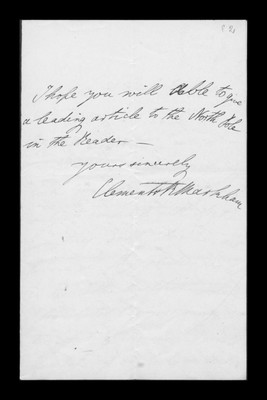 I hope you will able to give
a leading article to the North Pole
in the Reader —
yours sincerely
Clements R Markham